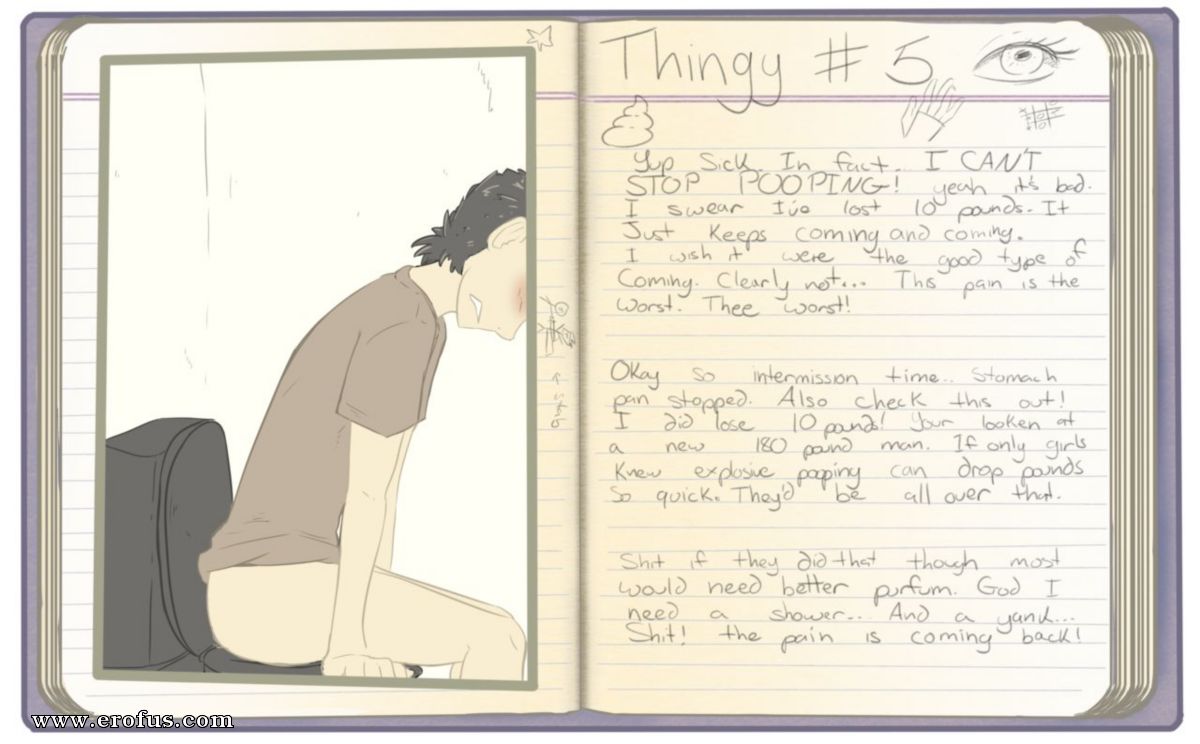 Thingy # 5
Yup Sick. In fact... I CAN'T
STOP POOPING! yeah it's bad.
I swear I've lost 10 pounds. It
Just Keeps coming and coming.
I wish it were the good type of
Coming. Clearly not... This pain is the
worst. Thee worst!
Okay so intermission time.. Stomach
pan stopped. Also check this out!
I did lose 10 pounds! Your looken at
a new 180 pound man. If only girls
Knew explosive pooping can drop pounds
So quick. They'd be all over that.
Shit if they did that though most
would need better purfum. God I
need a shower... And a yank...
Shit! the pain is coming back!
www.erofus.com